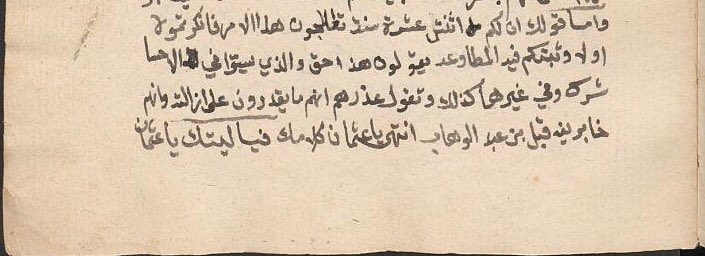 واما قولك ان لكم اثنتي عشرة سنة تعالجون هذا الامر فانكرتموه
اولا وثبتكم فيه المطاوعه يقولون هذا حق والذي سوا في الاحسا
شرك وفي غيرها كذلك وتقول عذرهم انهم ما يقدرون على ازالته وانهم
خابرينه قبل بن عبد الوهاب انتهى يا عثمان كلامك فيا ليتك يا عثمان